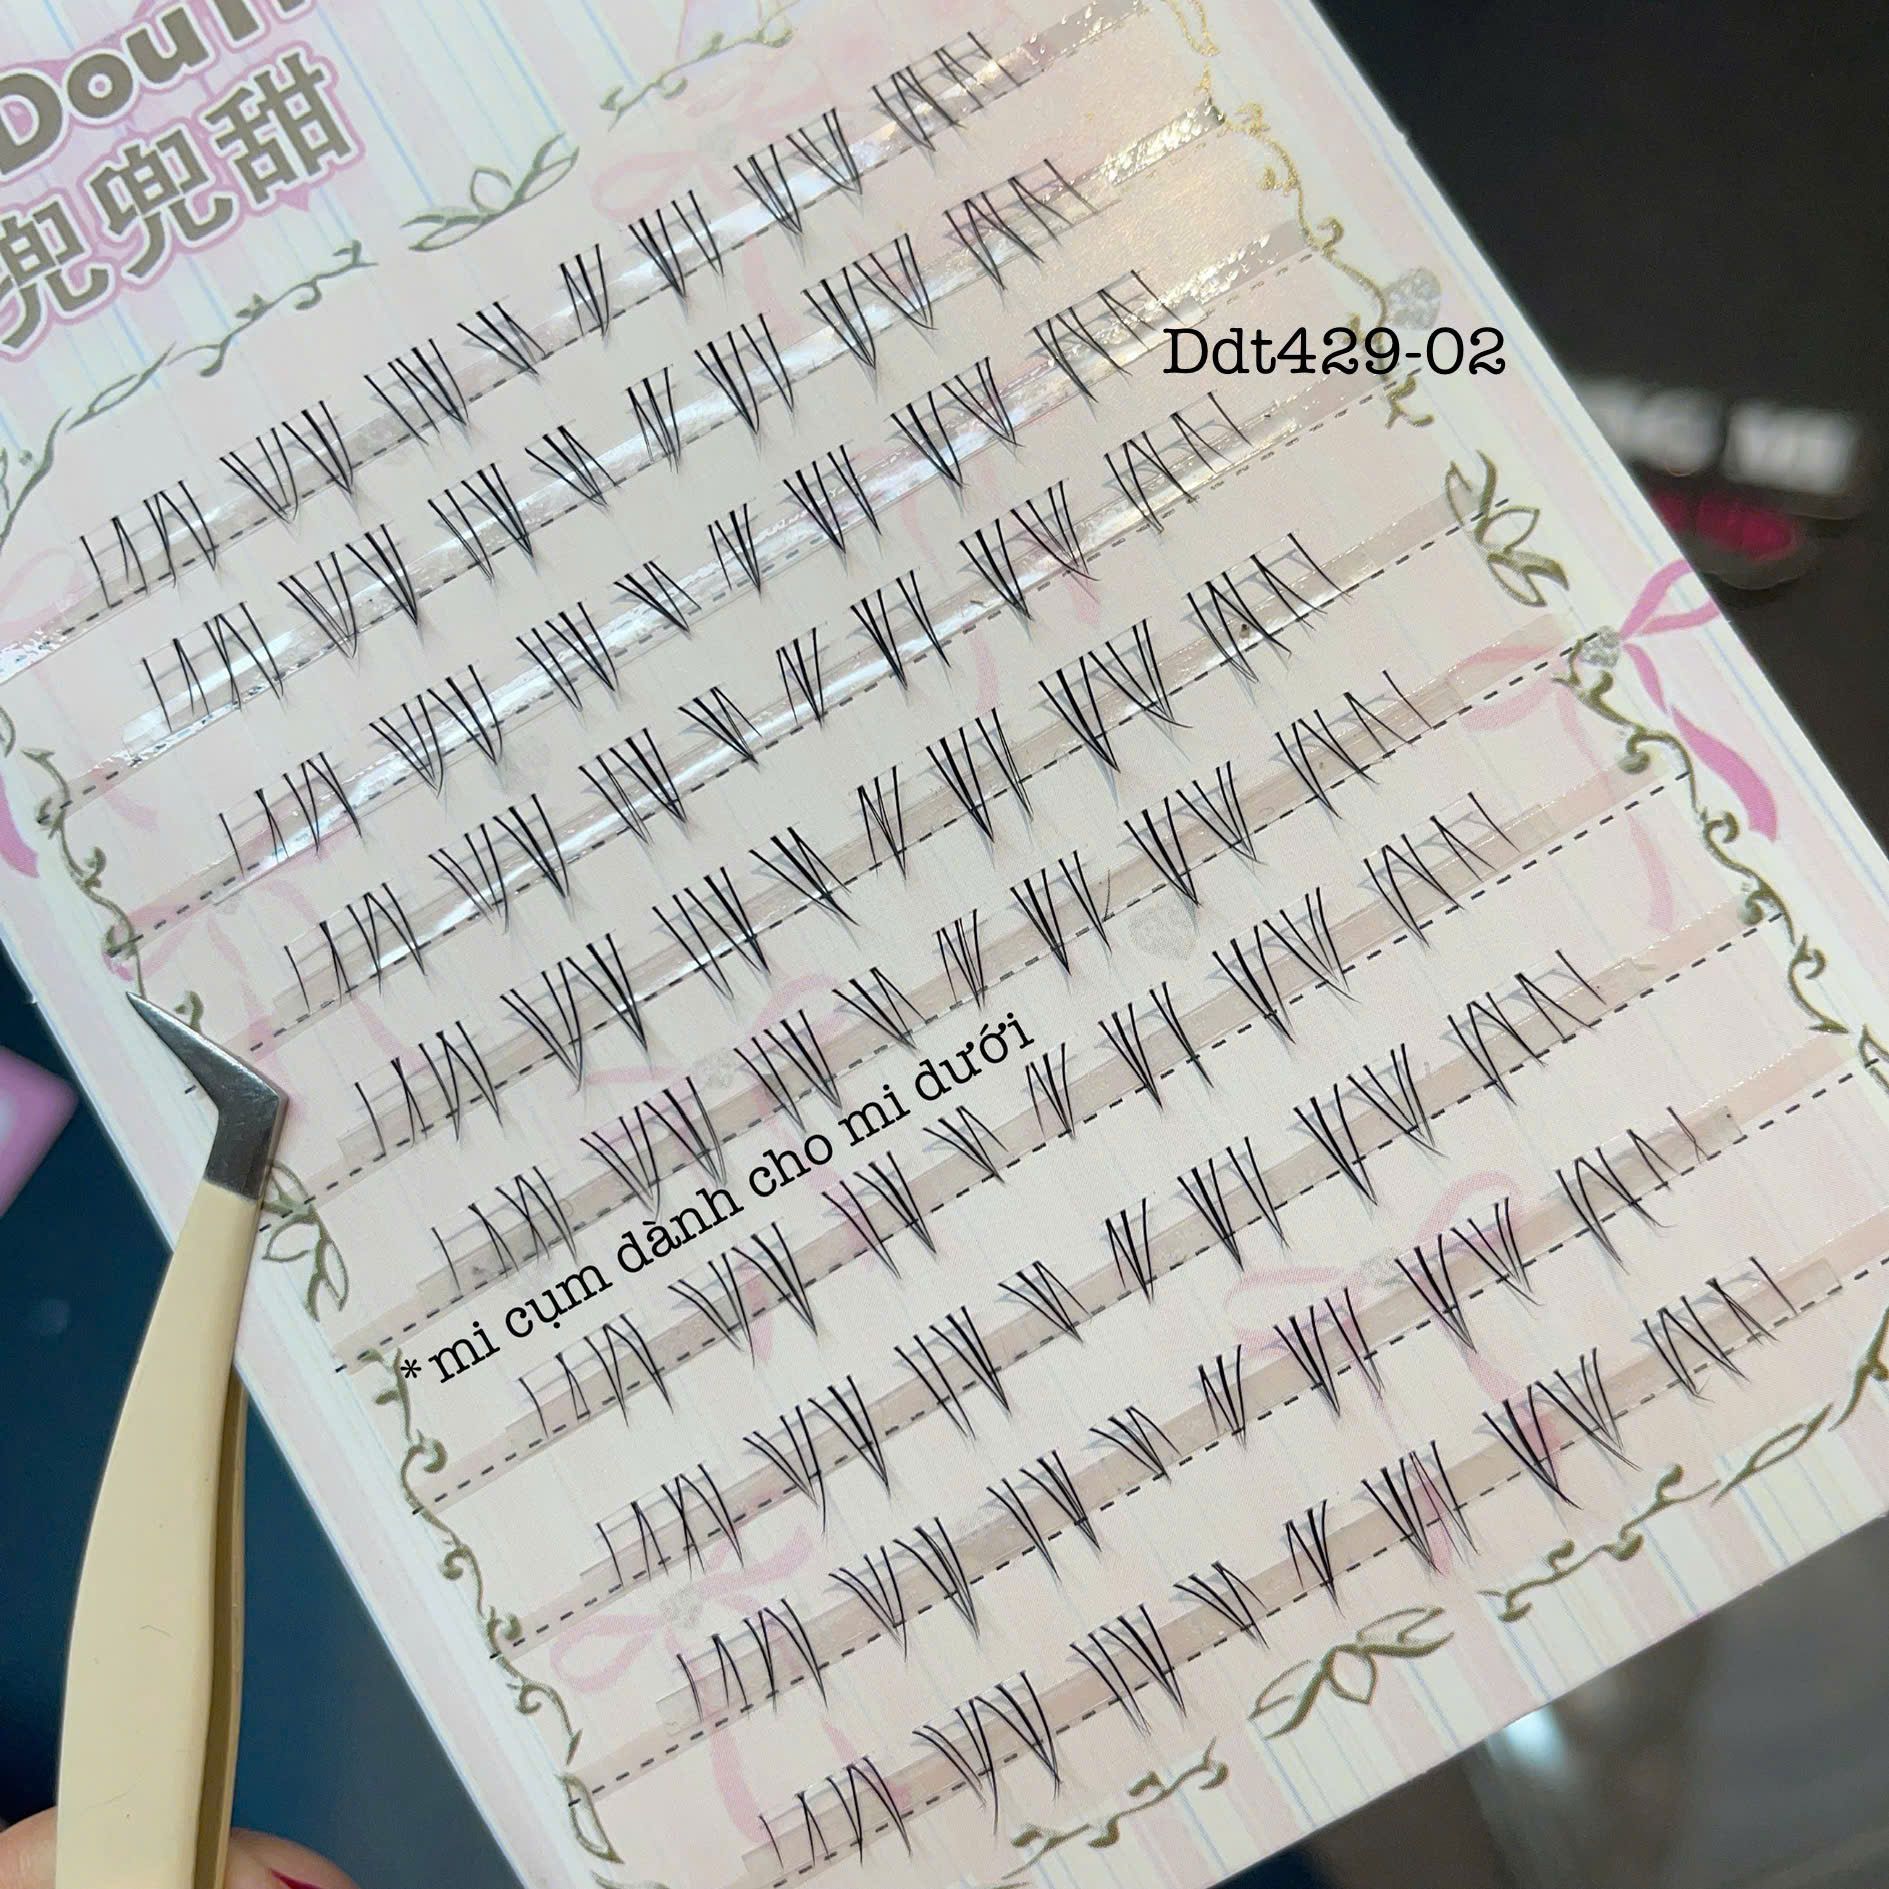 兜兜甜
Ddt429-02
* mi cụm dành cho mi dưới